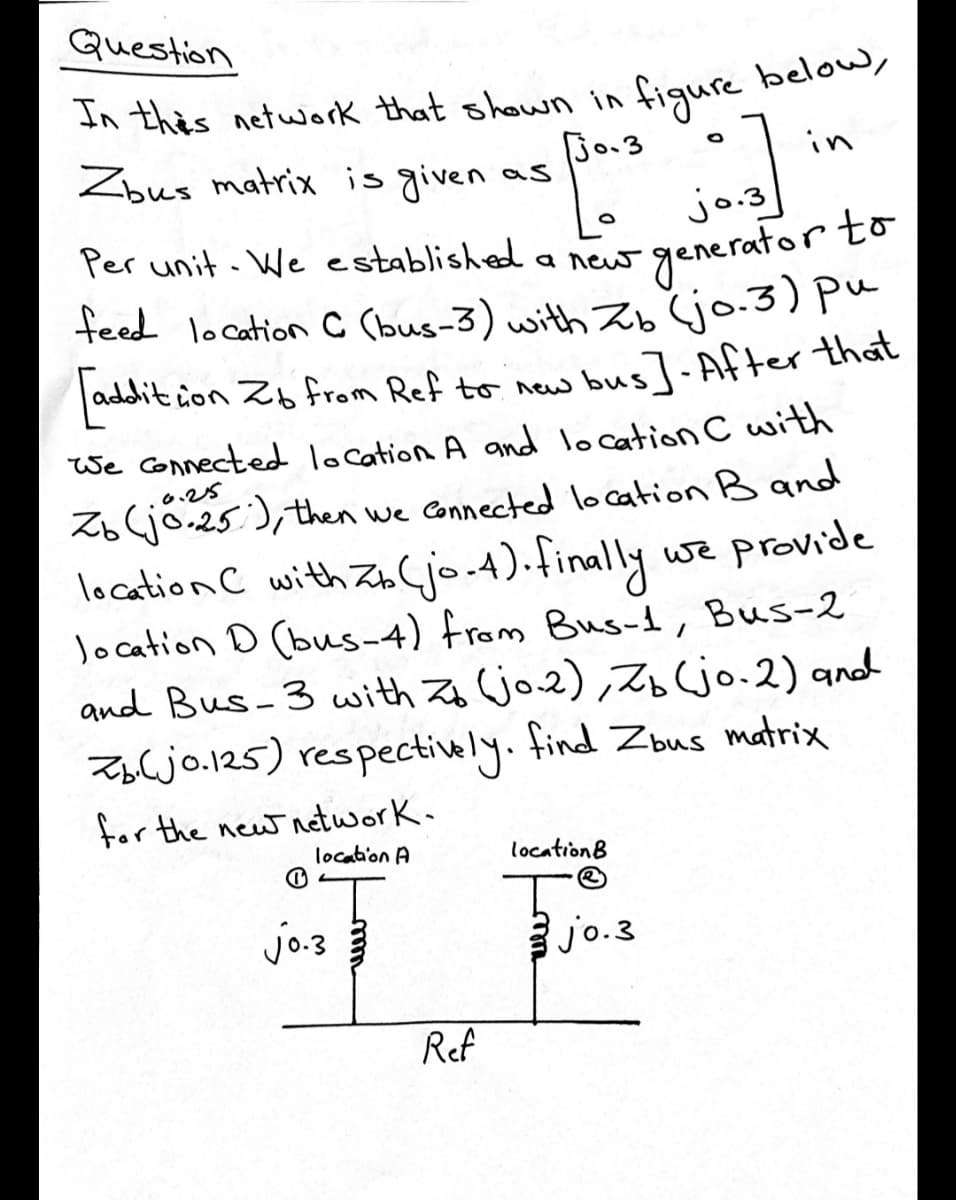 Question
In this network that shown in figure below,
Zbus matrix is given as [j0.3 0
0 j0.3] in
Per unit. We established a new generator to
feed location C (bus-3) with Zb (j0.3) pu
[addition Zb from Ref to new bus]. After that
We connected location A and location C with
0.25
Zb (j0.25), then we connected location B and
location C with Zb (j0.4). finally we provide
location D (bus-4) from Bus-1, Bus-2
and Bus-3 with Zb (j0.2), Zb (j0.2) and
Zb (j0.125) respectively. find Zbus matrix
for the new network.
location A location B
① ②
j0.3 j0.3
Ref